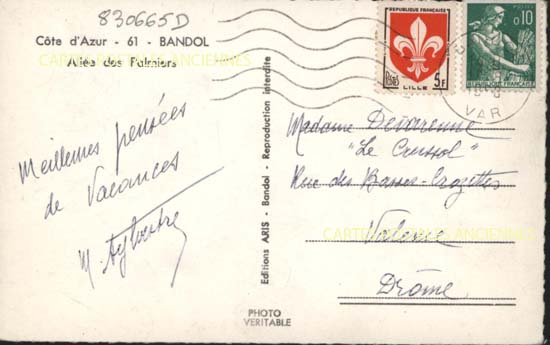 830665D
Côte d'Azur - 61 - BANDOL
Allée des Palmiers
Meilleures pensées
de Vacances
Editions ARIS - Bandol - Reproduction interdite
PHOTO
VERITABLE
REPUBLIQUE FRANÇAISE
5F
LILLE
POSTES
0,10
REPUBLIQUE FRANÇAISE
VAR
Madame Devarenne
"Le Crussol"
Rue des Basses-
Valence
Drôme
CARTES POSTALES ANCIENNES
CARTES POSTALES ANCIENNES